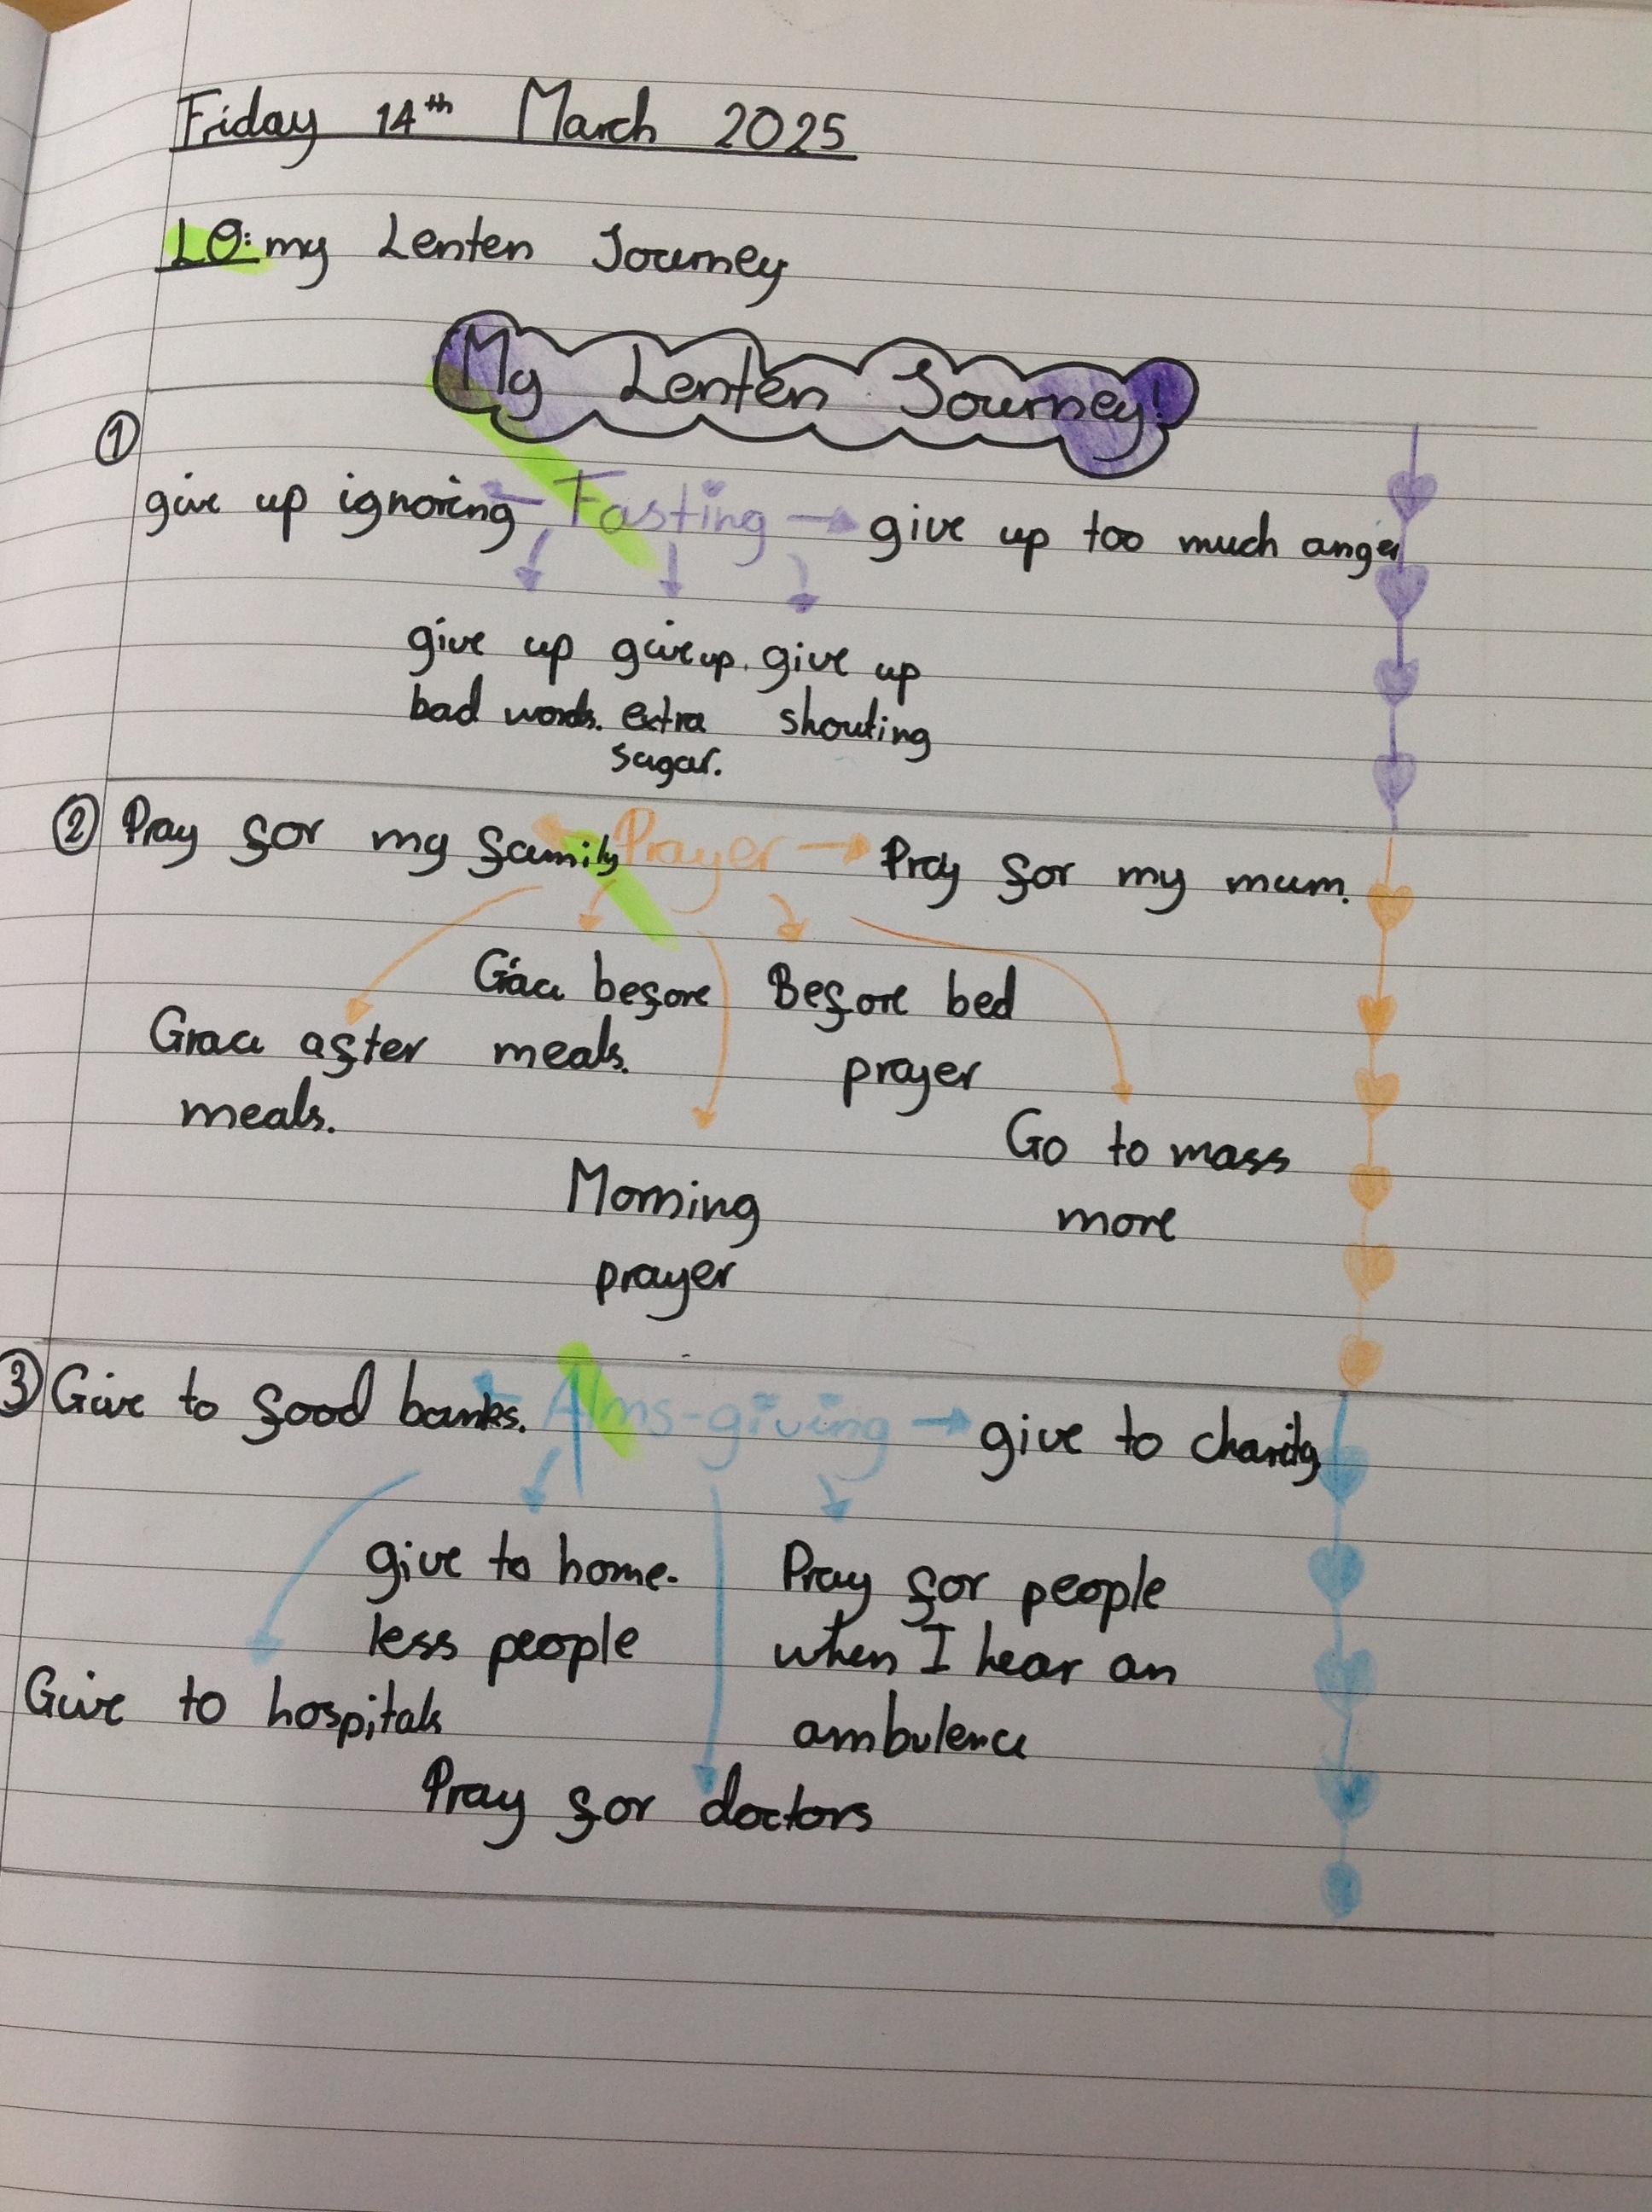 Friday 14th March 2025
LO: my Lenten Journey
My Lenten Journey!
①
give up ignoring Fasting give up too much anger
give up give up. give up
bad words. extra shouting
sugar.
② Pray for my family Prayer Pray for my mum.
Grace before Before bed
Grace after meals. prayer
meals.
Go to mass
Morning more
prayer
③ Give to food banks. Alms-giving give to charity
give to home- Pray for people
less people when I hear an
Give to hospitals ambulence
Pray for doctors